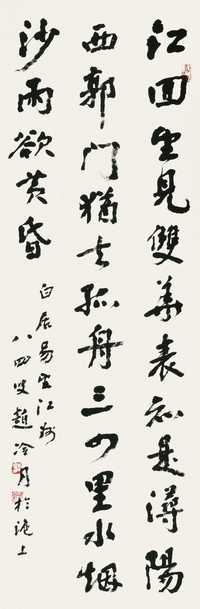 江回望見雙華表知是潯陽
西郭門猶去孤舟三四里水烟
沙雨欲黃昏
白居易望江州
八四叟趙冷月於滬上